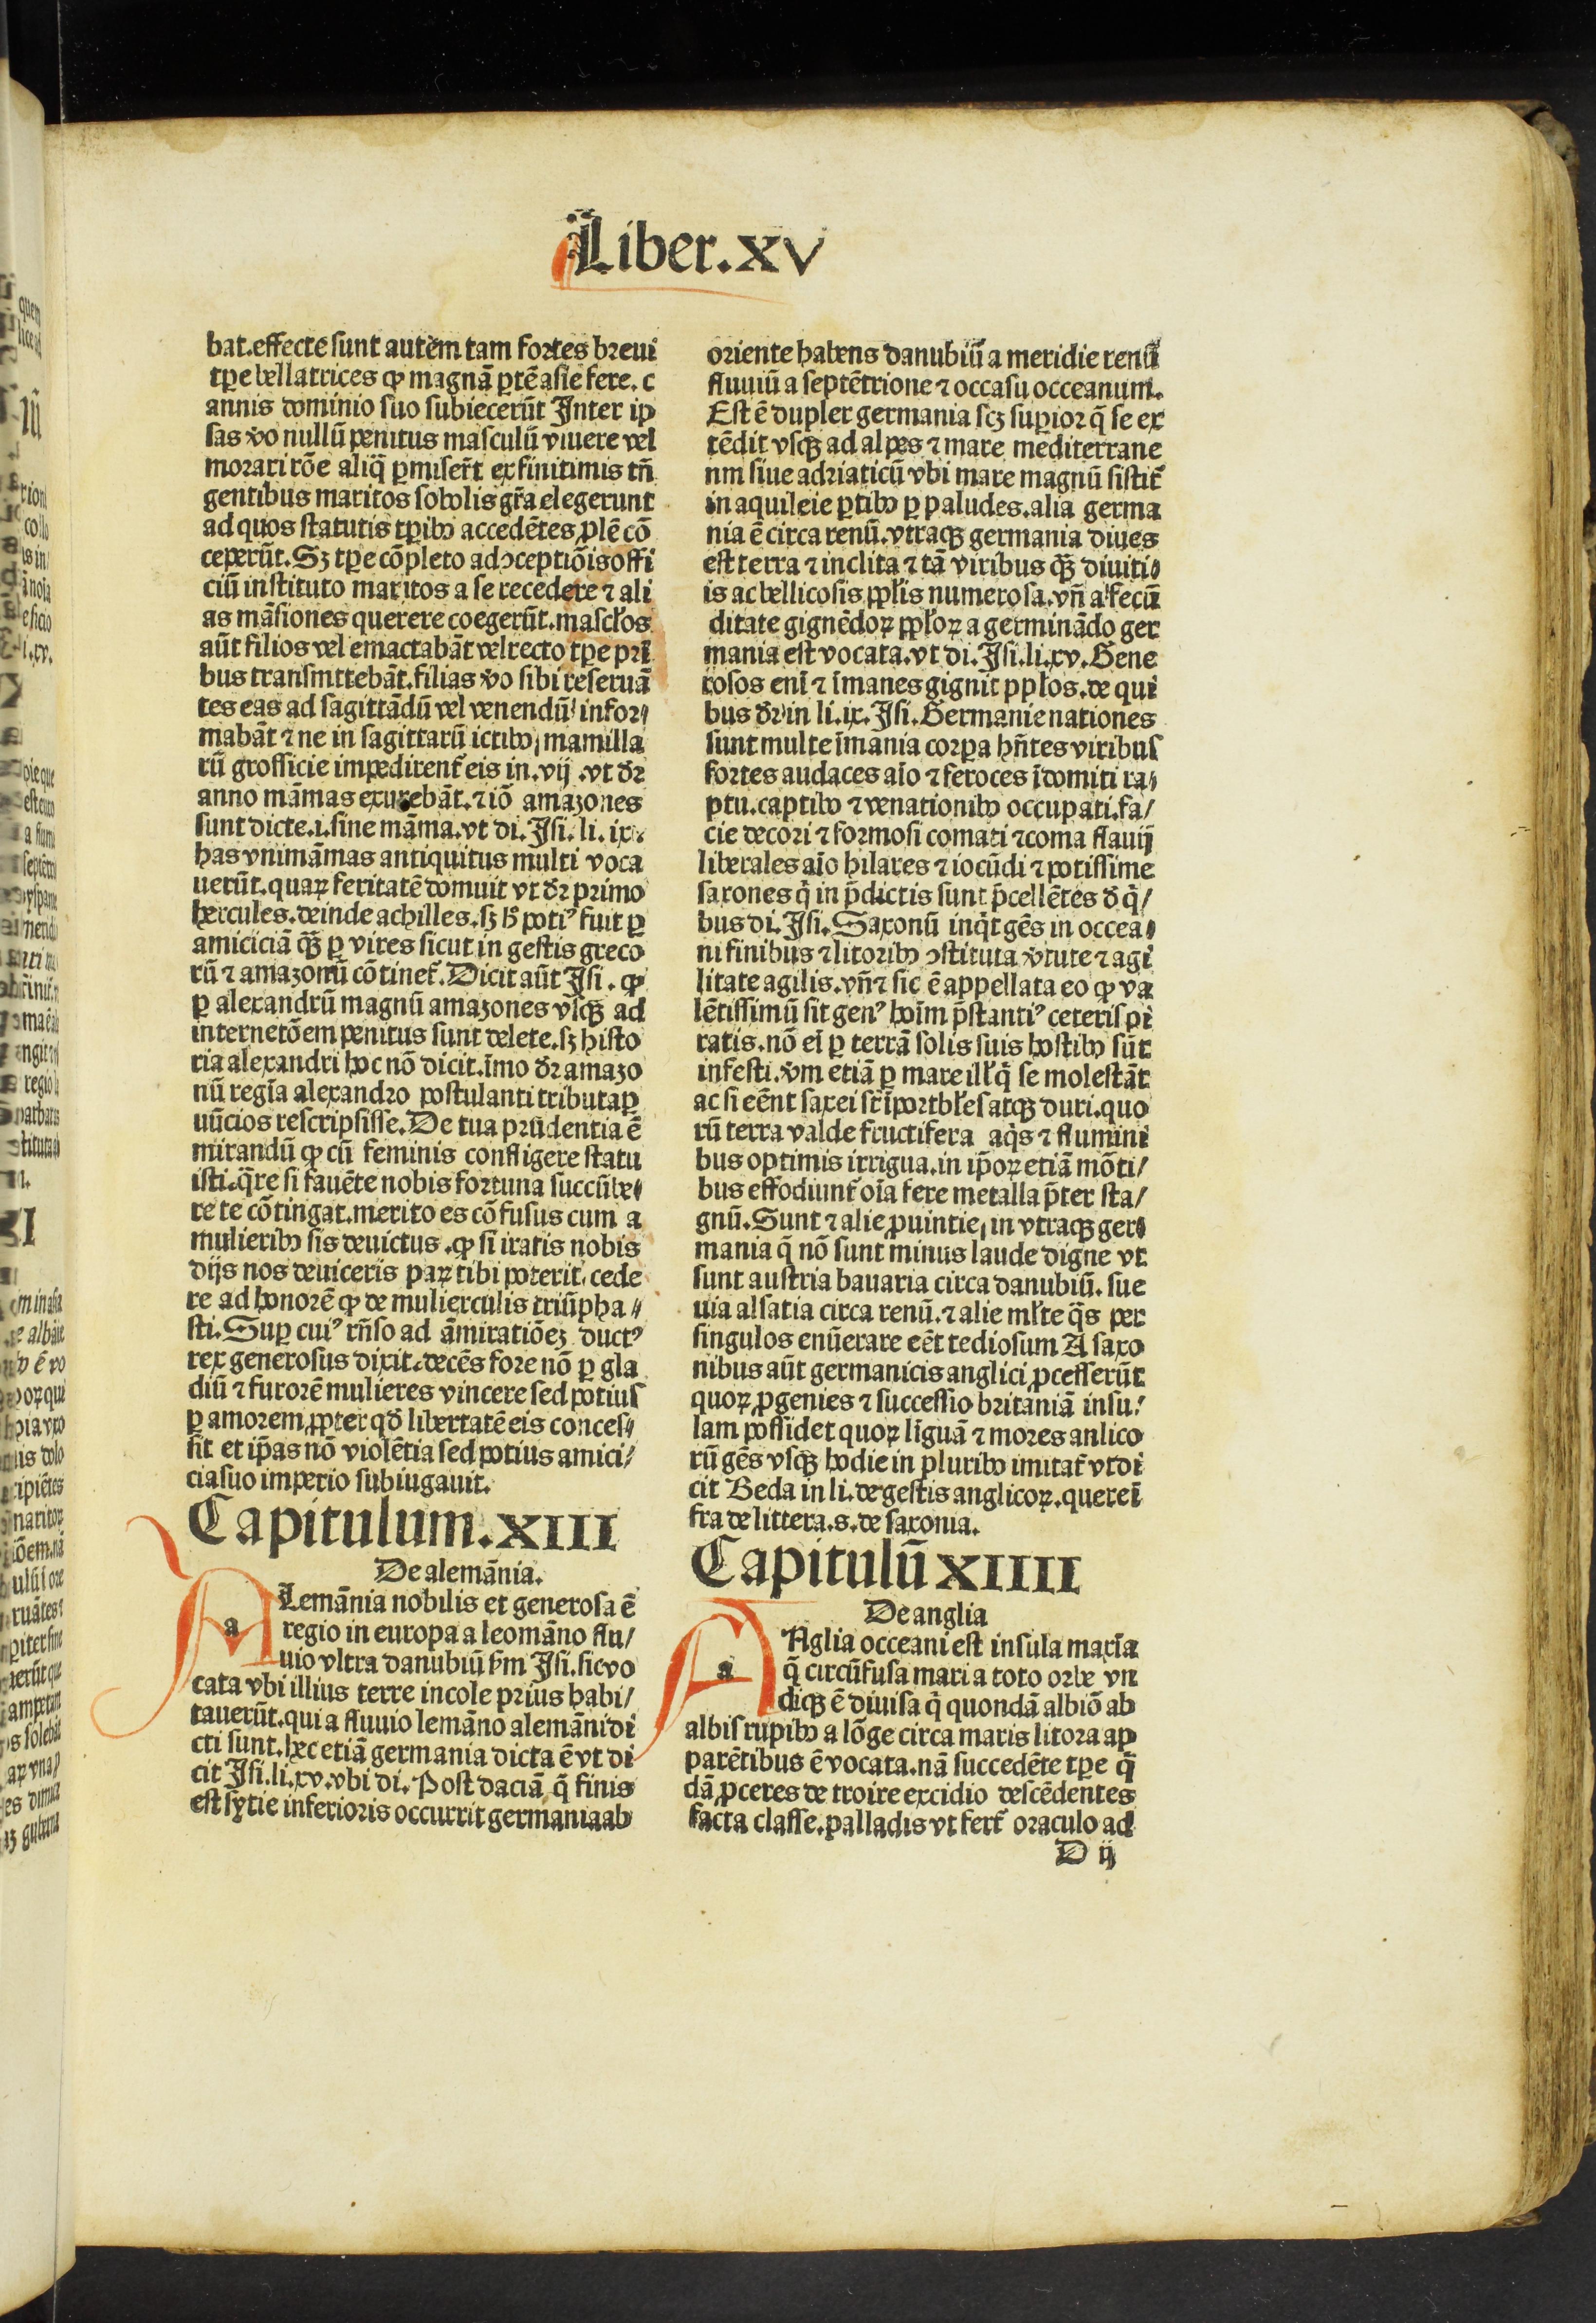 Liber.XV
bat.effecte sunt autem tam fortes breui
tꝑe bellatrices ꝙ magnā ꝑtē asie fere.c
annis dominio suo subiecerūt Inter ip
sas ỽo nullū penitus masculū viuere vel
morari rōe aliq̄ ꝑmiser̄t ex finitimis tn̄
gentibus maritos sobolis gr̄a elegerunt
ad quos statutis tꝑibꝰ accedētes ꝓlē cō
ceperūt. Sꝫ tꝑe cōpleto ad ꝯceptiōis offi
ciū instituto maritos a se recedere ⁊ ali
as māsiones querere coegerūt.mascłos
aūt filios vel emactabāt vel recto tꝑe pri
bus transmittebāt.filias ỽo sibi reseruā
tes eas ad sagittādū vel venendū infor⸗
mabāt ⁊ ne in sagittarū ictibꝰ mamilla
rū grossicie impedirent̄ eis in.vij.vt dr̄
anno māmas exurebāt.⁊ iō amazones
sunt dicte.i.sine māma.vt di. Isi.li.ix.
has vnimāmas antiquitus multi voca
uerūt.quaꝝ feritatē domuit vt dr̄ primo
hercules.deinde achilles.sꝫ h̄ potiꝰ fuit ꝑ
amiciciā qꝫ̄ ꝑ vires sicut in gestis greco
rū ⁊ amazonū cōtinet̄. Dicit aūt Isi. ꝙ
ꝑ alexandrū magnū amazones vsqꝫ ad
internetōem penitus sunt delete.sꝫ histo
ria alexandri hoc nō dicit.īmo dr̄ amazo
nū regīa alexandro postulanti tributa ꝑ
nūcios rescripsisse. De tua prudentia ē
mirandū ꝙ cū feminis confligere statu
isti.q̄re si fauēte nobis fortuna succūbe⸗
re te cōtingat.merito es cōfusus cum a
mulieribꝰ sis deuictus.ꝙ si iratis nobis
dijs nos deuiceris paꝝ tibi poterit cede
re ad honorē ꝙ de mulierculis triūpha⸗
sti. Suꝑ cuiꝰ rn̄so ad āmiratiōeꝫ ductꝰ
rex generosus dixit.decēs fore nō ꝑ gla
diū ⁊ furorē mulieres vincere sed potius
ꝑ amorem ꝓpter qd̄ libertatē eis conces⸗
sit et ip̄as nō violētia sed potius amici/
cia suo imperio subiugauit.
Capitulum.XIII
De alemānia.
a Lemānia nobilis et generosa ē
regio in europa a leomāno flu/
uio vltra danubiū ẜm Isi.sic vo
cata vbi illius terre incole prius habi/
tauerūt.qui a fluuio lemāno alemāni di
cti sunt.hec etiā germania dicta ē vt di
cit Isi.li.xv.vbi di. Post daciā q̄ finis
est sytie inferioris occurrit germania ab
oriente habens danubiū a meridie renū
fluuiū a septētrione ⁊ occasu occeanum.
Est ē duplex germania scꝫ suꝑior q̄ se ex
tēdit vsqꝫ ad alpes ⁊ mare mediterrane
nm siue adriaticū vbi mare magnū sistit̄
in aquileie ꝑtibꝰ ꝑ paludes.alia germa
nia ē circa renū.vtraqꝫ germania diues
est terra ⁊ inclita ⁊ tā viribus qꝫ̄ diuiti⸗
is ac bellicosis ppłis numerosa.vn̄ a fecū
ditate gignēdoꝝ ppłoꝝ a germinādo ger
mania est vocata.vt di. Isi.li.xv. Gene
rosos enī ⁊ īmanes gignit ppłos.de qui
bus dr̄ in li.ix. Isi. Germanie nationes
sunt multe īmania corꝑa hn̄tes viribus
fortes audaces aīo ⁊ feroces īdomiti ra⸗
ptu.captibꝰ ⁊ venationibꝰ occupati.fa/
cie decori ⁊ formosi comati ⁊ coma flauij
liberales aīo hilares ⁊ iocūdi ⁊ potissime
saxones q̄ in p̄dictis sunt p̄cellētes d̄ q̄/
bus di. Isi. Saxonū inq̄t gēs in occea⸗
ni finibus ⁊ litoribꝰ ꝯstituta ỽtute ⁊ agi
litate agilis.vn̄ ⁊ sic ē appellata eo ꝙ va
lētissimū sit genꝰ hoīm p̄stantiꝰ ceteris pi
ratis.nō eī ꝑ terrā solis suis hostibꝰ sūt
infesti.ỽm etiā ꝑ mare illłq̄ se molestāt
ac si eēnt saxei str̄ īportbłes atqꝫ duri.quo
rū terra valde fructifera aq̄s ⁊ flumini
bus optimis irrigua.in ip̄oꝝ etiā mōti/
bus effodiunt̄ oīa fere metalla p̄ter sta/
gnū. Sunt ⁊ alie ꝓuintie in vtraqꝫ ger⸗
mania q̄ nō sunt minus laude digne vt
sunt austria bauaria circa danubiū. sue
uia alsatia circa renū.⁊ alie młte q̄s per
singulos enūerare eēt tediosum A saxo
nibus aūt germanicis anglici ꝓcesserūt
quoꝝ ꝓgenies ⁊ successio britaniā insu⸗
lam possidet quoꝝ līguā ⁊ mores anlico
rū gēs vsqꝫ hodie in pluribꝰ imitat̄ vt di
cit Beda in li.de gestis anglicoꝝ.quere ī
fra de littera.s.de saxonia.
Capitulū XIIII
De anglia
a Aglia occeani est insula maxīa
q̄ circūfusa mari a toto orbe vn
diqꝫ ē diuisa q̄ quondā albiō ab
albis rupibꝰ a lōge circa maris litora ap
parētibus ē vocata.nā succedēte tꝑe q̄
dā ꝓceres de troire excidio descēdentes
facta classe.palladis vt fert̄ oraculo ad
D ij